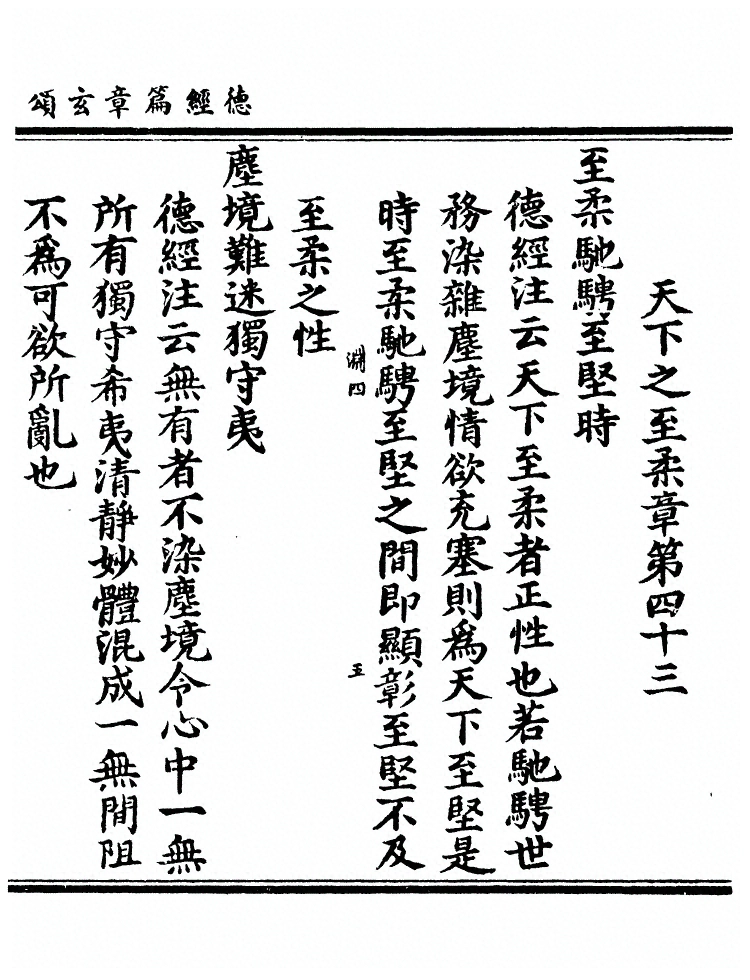 德經篇章玄頌
天下之至柔章第四十三
至柔馳騁至堅時
德經注云天下至柔者正性也若馳騁世
務染雜塵境情欲充塞則爲天下至堅是
時至柔馳騁至堅之間即顯彰至堅不及
淵四
五
至柔之性
塵境難迷獨守夷
德經注云無有者不染塵境令心中一無
所有獨守希夷清靜妙體混成一無間阻
不爲可欲所亂也